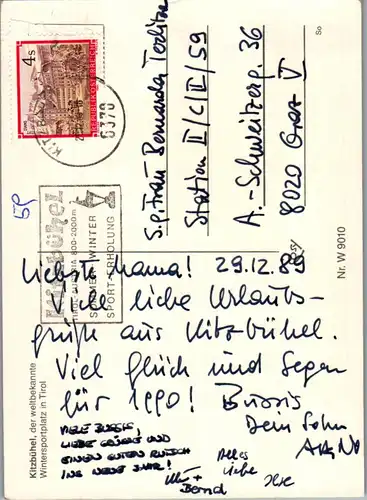 4s
REPUBLIK ÖSTERREICH
6370
Kitzbühel
TIROL AUSTRIA 800-2000m
SOMMER WINTER
SPORT ERHOLUNG
59
S.g. Frau Bernarda
Station II/C/II/59
A.-Schweitzerg. 36
8020 Graz V
29.12.89
Liebste Mama!
Viele liebe Urlaubs-
grüße aus Kitzbühel.
Viel Glück und Segen
für 1990! Bussis
Dein Sohn
VIELE BUSSIS,
LIEBE GRÜSSE UND
EINEN GUTEN RUTSCH
INS NEUE JAHR!
+
Bernd
Alles
Liebe
Kitzbühel, der weltbekannte
Wintersportplatz in Tirol
Nr. W 9010
So